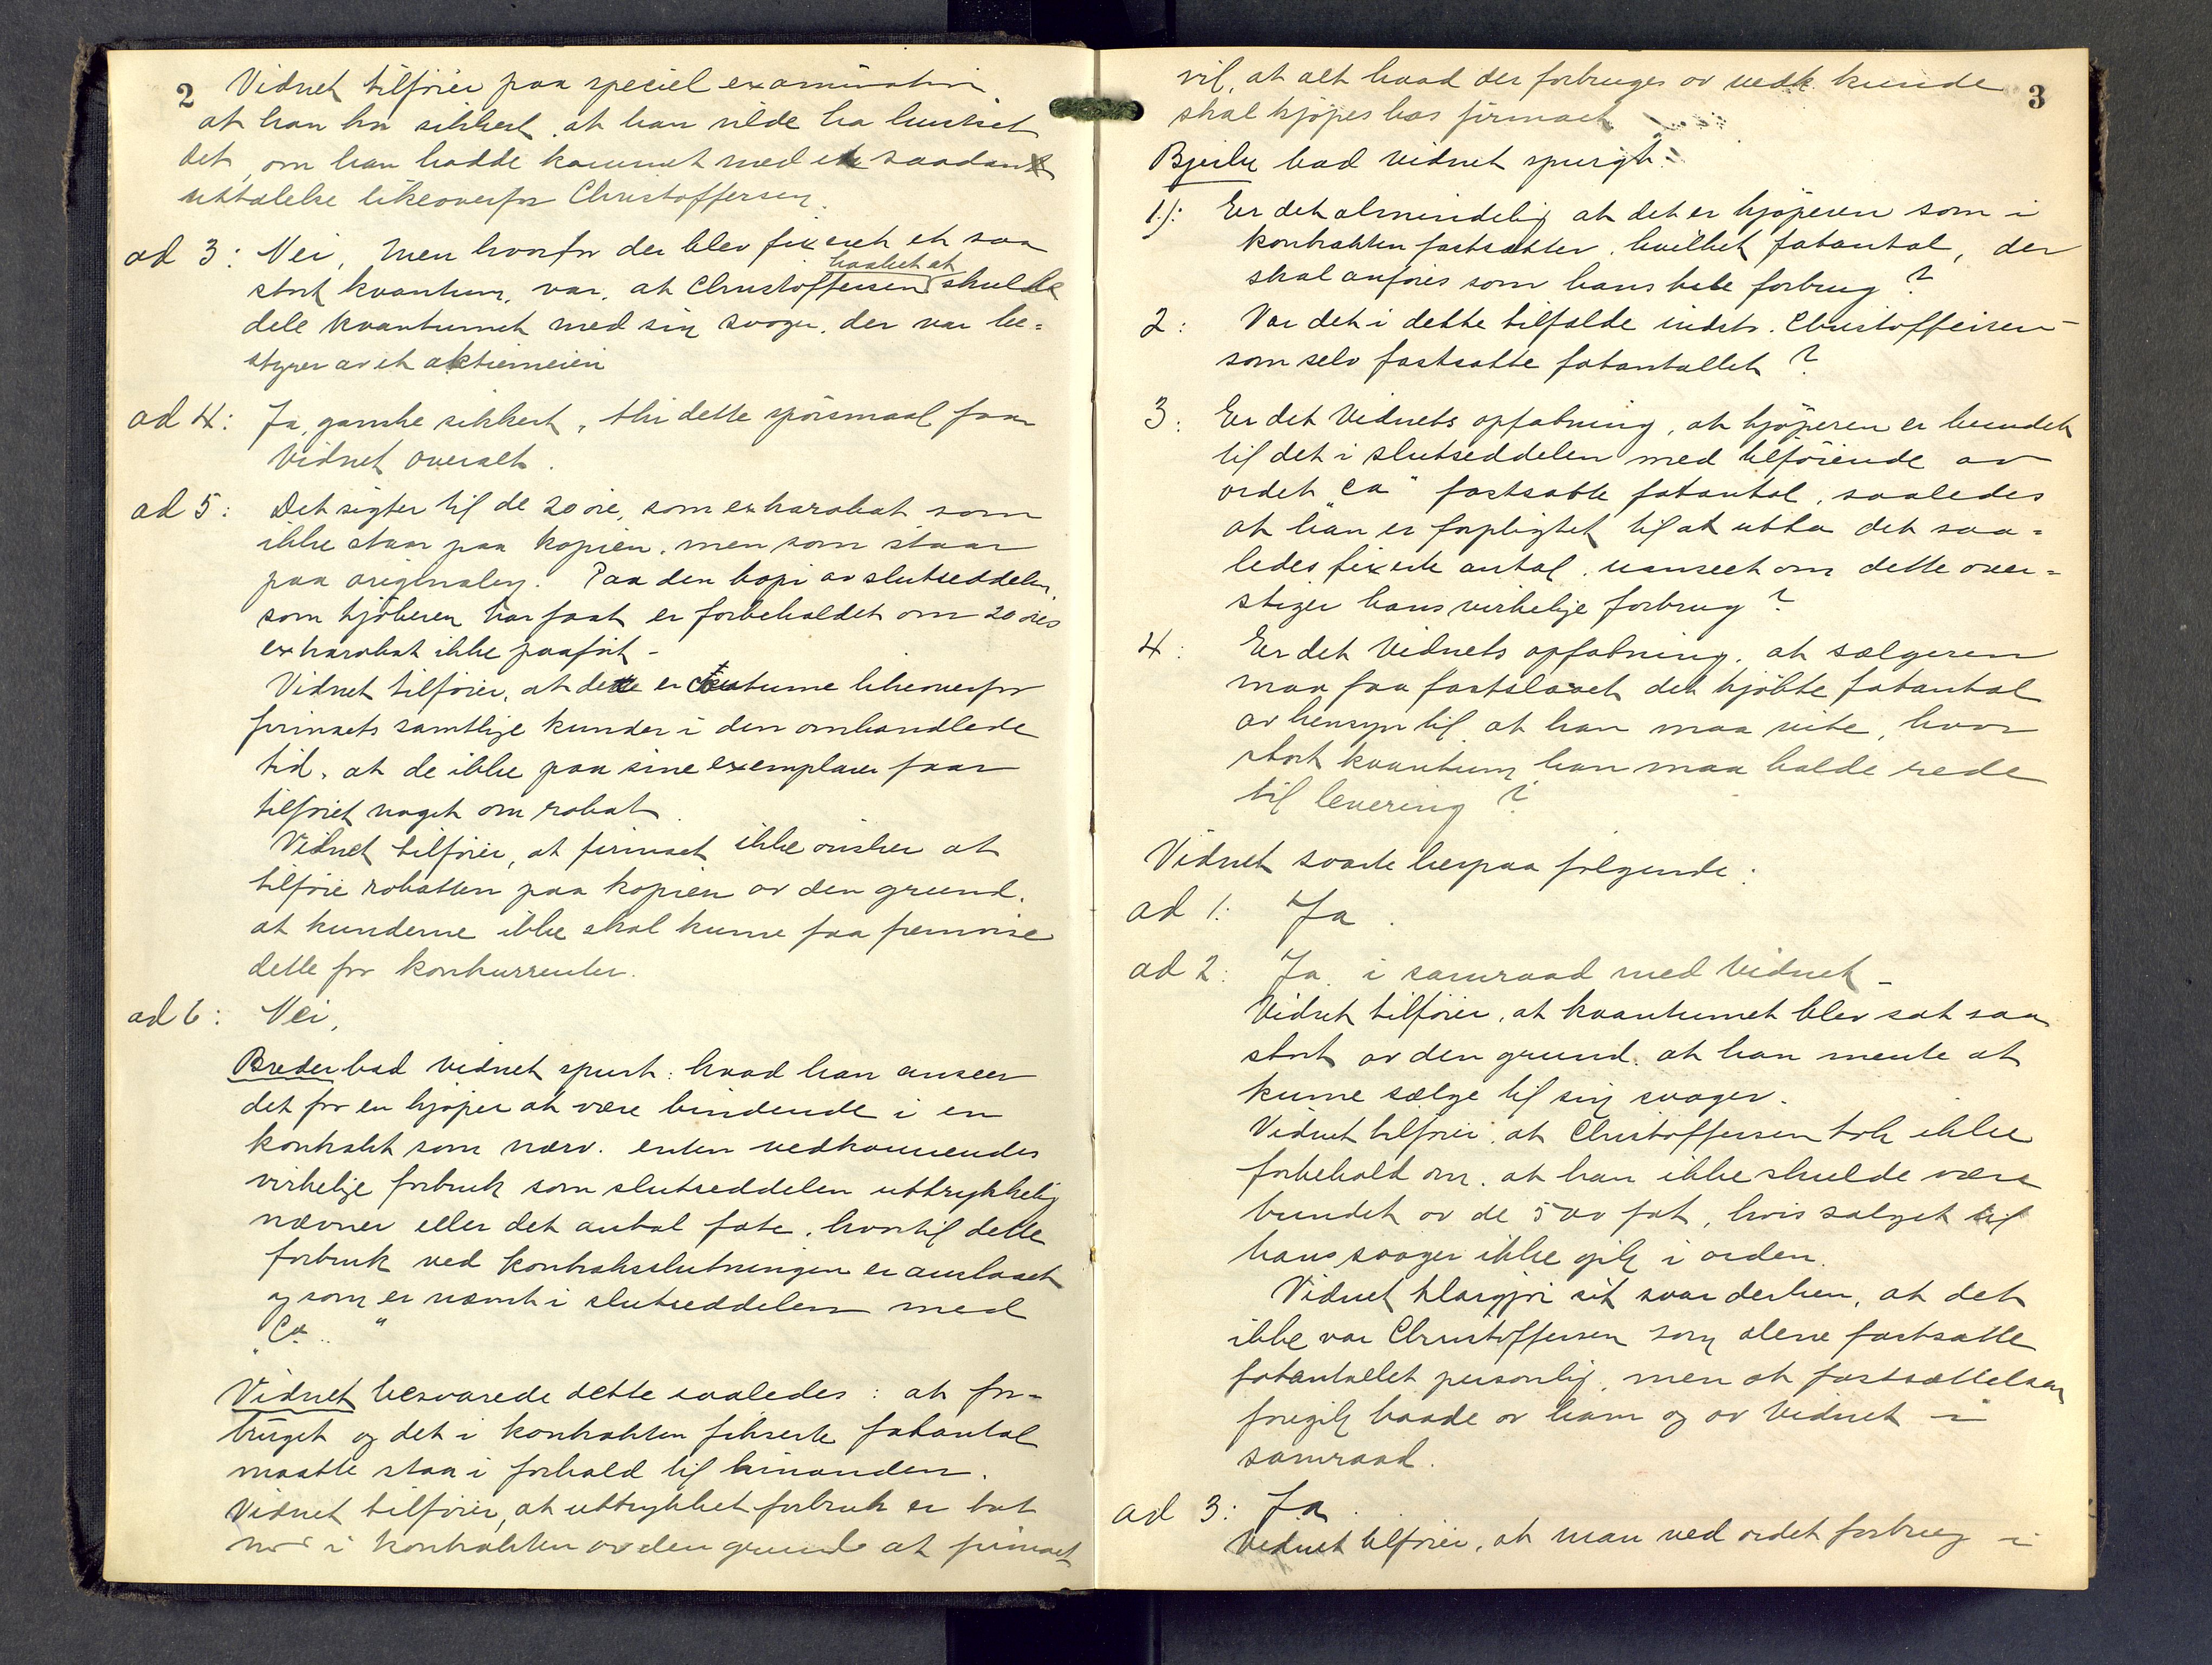 2
Vidnet tilføier paa speciel examination
at han tror sikkert, at han vilde ha husket
det, om han hadde kommet med en saadan
uttalelse likeoverfor Christoffersen.
ad 3: Nei, men hvorfor der blev fixeret et saa
haabet at
stort kvantum, var, at Christoffersen skulde
dele kvantumet med sin svoger, der var be=
styrer av et aktiemeieri
ad 4: Ja, ganske sikkert, thi dette spörsmaal faar
Vidnet overalt.
ad 5: Det sigter til de 20 øre, som extrarabat som
ikke staar paa kopien, men som staar
paa originalen. Paa den kopi av slutseddelen,
som kjöberen har faat er forbeholdet om 20 øres
extrarabat ikke paafört -
Vidnet tilføier, at dette er kutume likeoverfor
firmaets samtlige kunder i den omhandlede
tid, at de ikke paa sine exemplarer faar
tilføiet noget om rabat.
Vidnet tilføier, at firmaet ikke önsker at
tilføie rabatten paa kopien av den grund,
at kunderne ikke skal kunne faa fremvise
dette for konkurrenter.
ad 6: Nei,
Breder bad vidnet spurt: hvad han anseer
det for en kjøper at være bindende i en
kontrakt som nærv. enten vedkommendes
virkelige forbruk som slutseddelen uttrykkelig
nævner eller det antal fate, hvortil dette
forbruk ved kontraktslutningen er anslaaet
og som er nævnt i slutseddelen med
"Ca .. "
Vidnet besvarede dette saaledes: at for-
bruget og det i kontrakten fikserte fatantal
maatte staa i forhold til hinanden.
Vidnet tilføier, at uttrykket forbruk er tat
med i kontrakten av den grund at firmaet
3
vil, at alt hvad der forbruges av vedk. kunde
skal kjøpes hos firmaet
bad vidnet spurgt:
1): Er det almindelig at det er kjøperen som i
kontrakten fastsætter, hvilket fatantal, der
skal anføres som hans hele forbrug?
2: Var det i dette tilfælde indst. Christoffersen -
som selv fastsatte fatantallet?
3: Er det Vidnets opfatning, at kjøperen er bundet
til det i slutseddelen med tilføiende av
ordet "ca" fastsatte fatantal, saaledes
at han er forpligtet til at utta det saa=
ledes fixerte antal, uanseet om dette over=
stiger hans virkelige forbrug?
4: Er det Vidnets opfatning, at sælgeren
maa faa fastslaaet det kjöbte fatantal
av hensyn til, at han maa vite, hvor
stort kvantum han maa holde rede
til levering?
Vidnet svarte herpaa følgende:
ad 1: Ja.
ad 2: Ja, i samraad med Vidnet -
Vidnet tilføier, at kvantumet blev sat saa
stort av den grund, at han mente at
kunne sælge til sin svoger.
Vidnet tilføier, at Christoffersen tok ikke
forbehold om, at han ikke skulde være
bundet av de 500 fat, hvis salget til
hans svoger ikke gik i orden.
Vidnet klargjør sit svar derhen, at det
ikke var Christoffersen som alene fastsatte
fatantallet personlig, men at fastsættelsen
foregik baade av ham og av Vidnet i
samraad.
ad 3: Ja.
Vidnet tilføier, at man ved ordet forbrug i